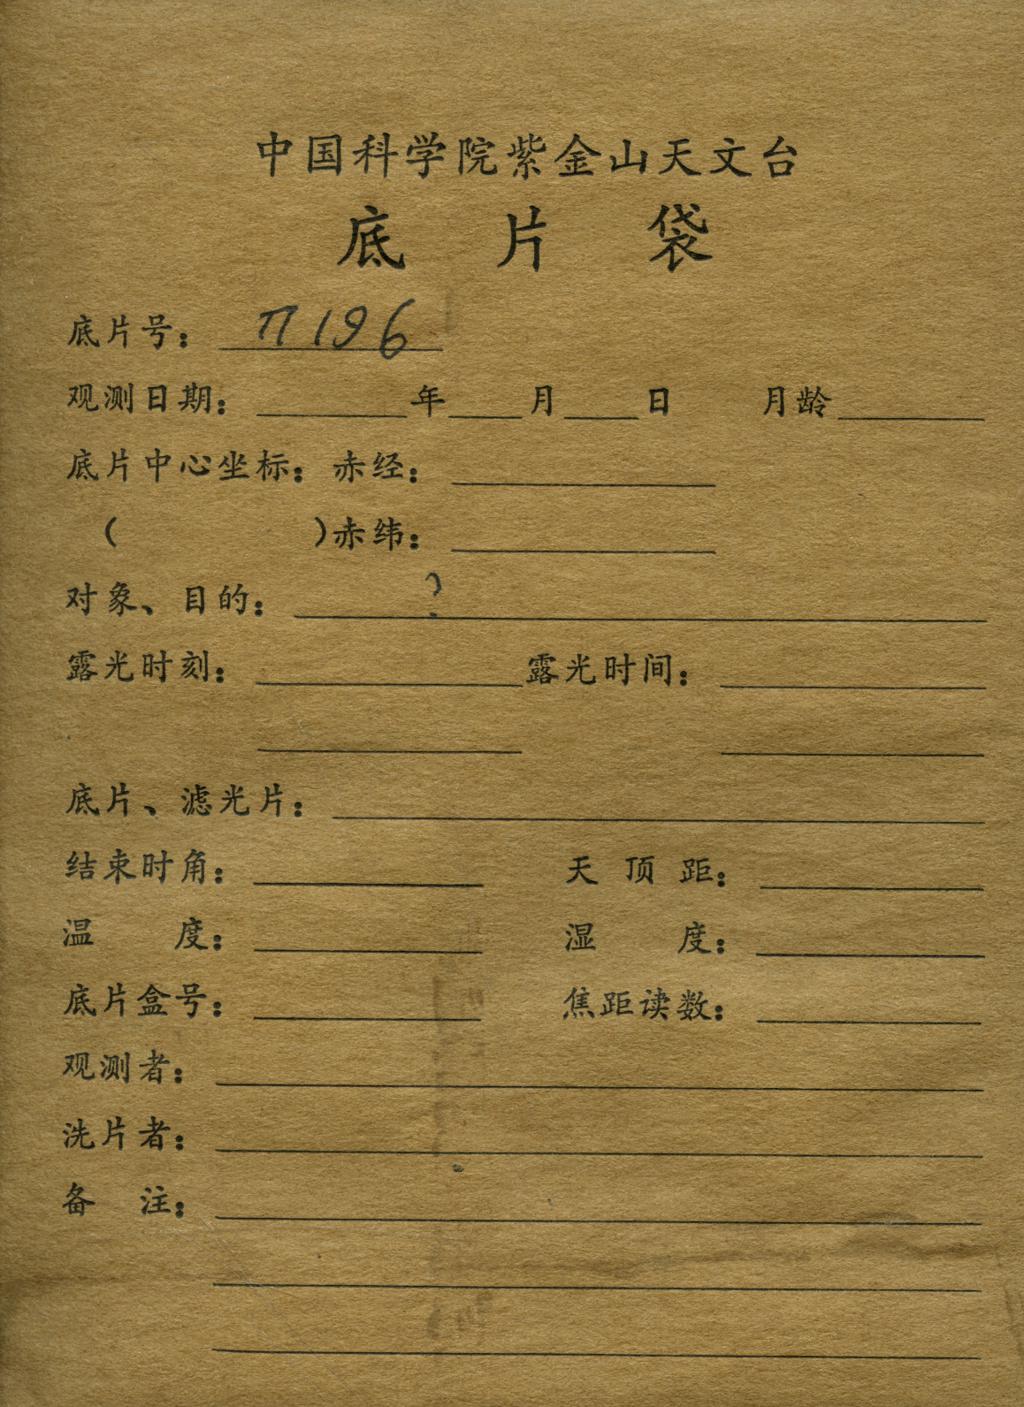 中国科学院紫金山天文台
底片袋
底片号： П196
观测日期： 年 月 日 月龄
底片中心坐标：赤经：
( )赤纬：
对象、目的： ?
露光时刻： 露光时间：
底片、滤光片：
结束时角： 天顶距：
温度： 湿度：
底片盒号： 焦距读数：
观测者：
洗片者：
备注：